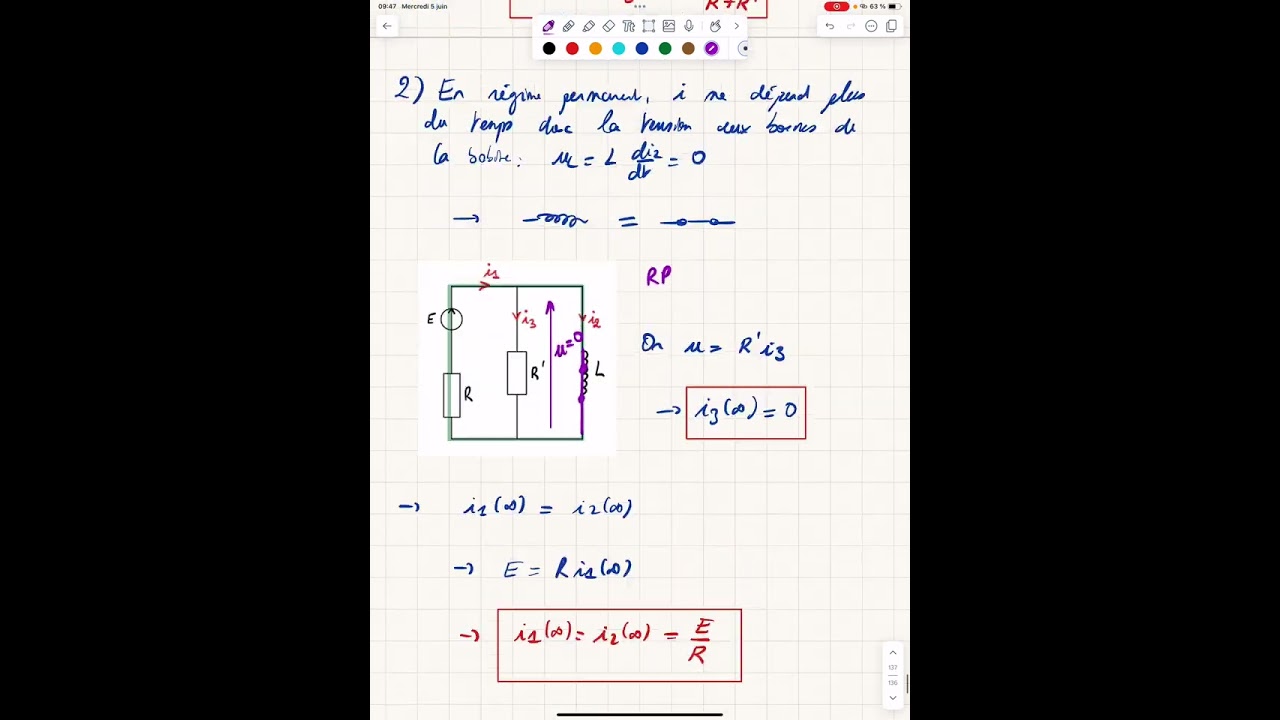 09:47 Mercredi 5 juin
63 %
R+R'
2) En régime permanent, i ne dépend plus
du temps donc la tension aux bornes de
la bobine : uL = L di2/dt = 0
→ =
i1
RP
E
i3
i2
u=0
On u = R'i3
R'
L
R
→ i3(∞) = 0
→ i1(∞) = i2(∞)
→ E = Ri1(∞)
→ i1(∞) = i2(∞) = E/R
137
136